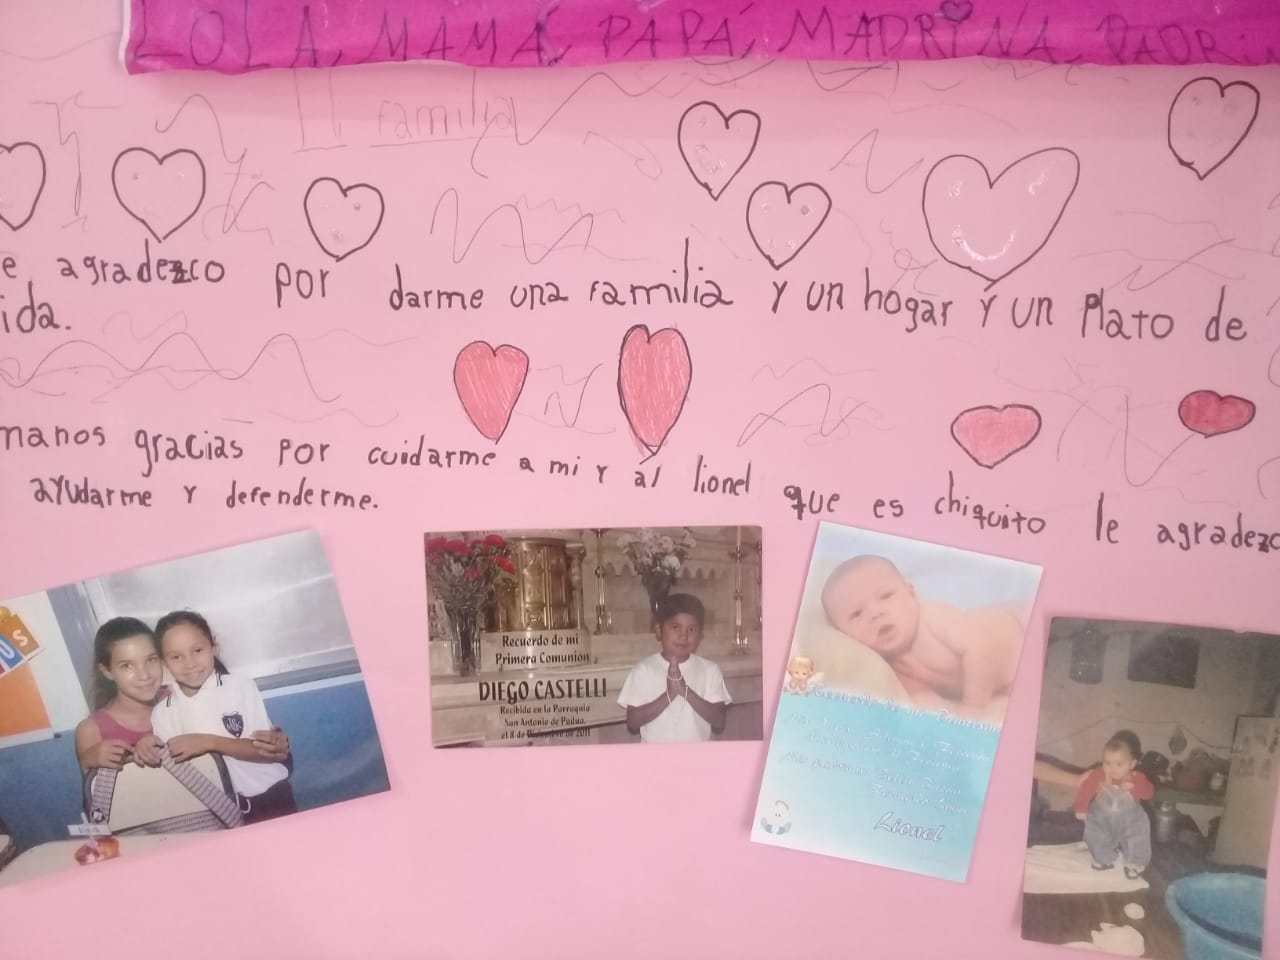 LOLA, MAMÁ, PAPÁ, MADRINA, PADRIN
familia
e agradezco por darme una familia y un hogar y un plato de
ida.
manos gracias por cuidarme a mi y al lionel que es chiquito le agradezc
ayudarme y defenderme.
Recuerdo de mi
Primera Comunión
DIEGO CASTELLI
Recibida en la Parroquia
San Antonio de Padua.
el 8 de Diciembre de 2011
Recuerdo de mi Bautismo
Mis padrinos
Lionel